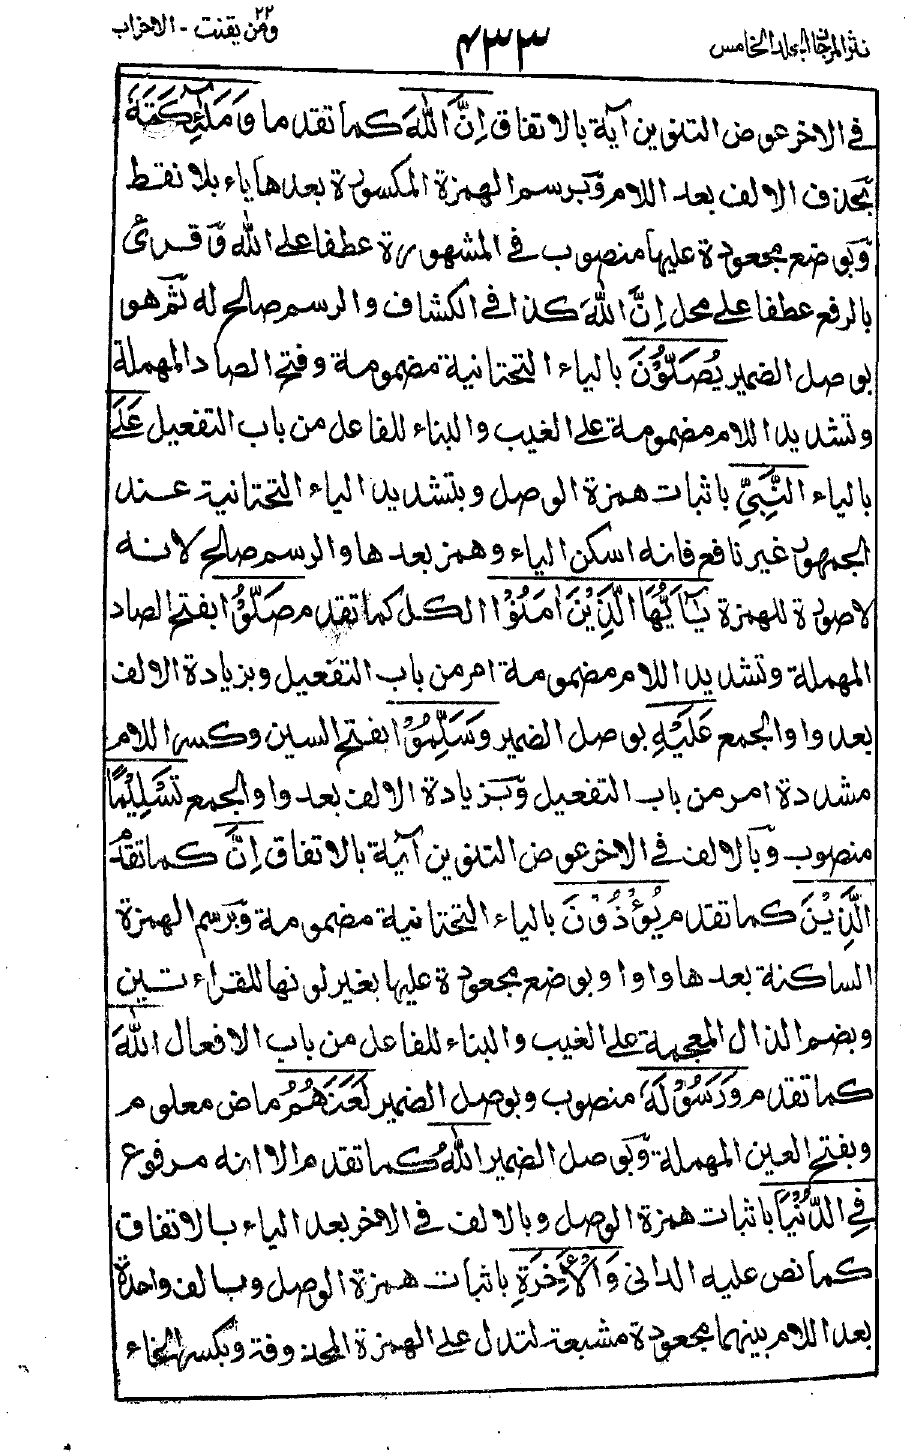 نثر المرجان الجلد الخامس
٤٣٣
ومن يقنت ٢٢ - الاحزاب
فى الاخر عوض التنوين آية بالاتفاق اِنَّ اللّٰهَ كما تقدما وَمَلٰٓئِكَتَهٗ
بحذف الالف بعد اللام وبرسم الهمزة المكسورة بعدها ياء بلا نقط
وبوضع مجعودة عليها منصوب فى المشهورة عطفا على الله وقرئ
بالرفع عطفا على محل اِنَّ اللّٰهَ كذا فى الكشاف والرسم صالح له ثم هو
بوصل الضمير يُصَلُّوْنَ بالياء التحتانية مضمومة وفتح الصاد المهملة
وتشديد اللام مضمومة على الغيب والبناء للفاعل من باب التفعيل عَلَى
بالياء النَّبِيِّ باثبات همزة الوصل وبتشديد الياء التحتانية عند
الجمهور غير نافع فانه اسكن الياء وهمز بعدها والرسم صالح لانه
لا صورة للهمزة يٰٓاَيُّهَا الَّذِيْنَ اٰمَنُوْا الكل كما تقدم صَلُّوْا بفتح الصاد
المهملة وتشديد اللام مضمومة امر من باب التفعيل وبزيادة الالف
بعد واو الجمع عَلَيْهِ بوصل الضمير وَسَلِّمُوْا بفتح السين وكسر اللام
مشددة امر من باب التفعيل وبزيادة الالف بعد واو الجمع تَسْلِيْمًا
منصوب وبالالف فى الاخر عوض التنوين آية بالاتفاق اِنَّ كما تقدم
الَّذِيْنَ كما تقدم يُؤْذُوْنَ بالياء التحتانية مضمومة وبرسم الهمزة
الساكنة بعدها واوا وبوضع مجعودة عليها بغير لونها للقراءتين
وبضم الذال المعجمة على الغيب والبناء للفاعل من باب الافعال اللّٰهَ
كما تقدم وَرَسُوْلَهٗ منصوب وبوصل الضمير لَعَنَهُمُ ماض معلوم
وبفتح العين المهملة وبوصل الضمير اللّٰهُ كما تقدم الا انه مرفوع
فِى الدُّنْيَا باثبات همزة الوصل وبالالف فى الاخر بعد الياء بالاتفاق
كما نص عليه الدانى وَالْاٰخِرَةِ باثبات همزة الوصل وبالف واحدة
بعد اللام بينهما مجعودة مشبعة لتدل على الهمزة المحذوفة وبكسر الخاء